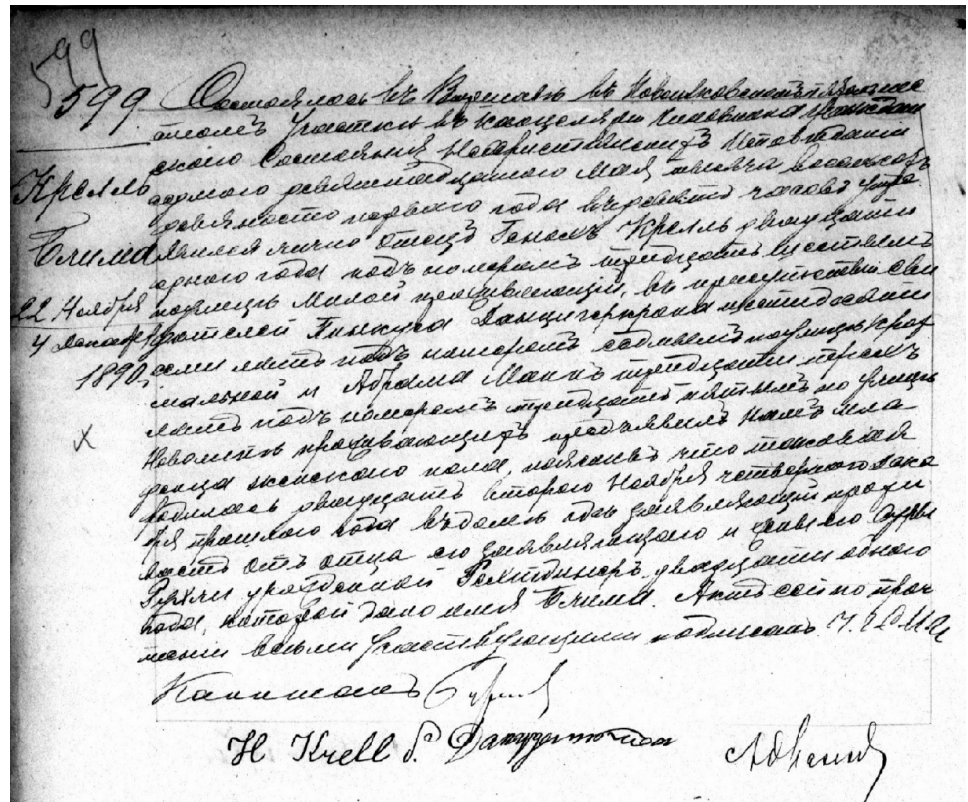 599
599
Крелль
Блима
22 Ноября
4 Декабря
1890
X
Состоялось въ Варшавѣ въ
столѣ участки въ канцеляріи Чиновника Граждан
скаго Состоянія Нехристіанскихъ Исповѣданій
Мая тысяча восемьсотъ
девяносто перваго года въ часовъ утра
явился лично отецъ Генохъ Крелль двадцати
одного года подъ номеромъ тридцать шестымъ
по улицѣ Милой проживающій, въ присутствіи сви
дѣтелей Пинкуса шестидесяти
семи лѣтъ подъ номеромъ седьмымъ по улицѣ Крох
мальной и Абрама Манн тридцати
лѣтъ подъ номеромъ тридцать пятымъ по улицѣ
Новолипъ проживающихъ предъявилъ намъ мла
денца женскаго пола, поясняя что таковая
родилась двадцать второго Ноября четвертого Дека
бря прошлаго года въ домѣ гдѣ заявляющій прожи
ваетъ отъ отца его заявляющаго и жены его
Рухли урожденной двадцати одного
года, которой дано имя Блима. Актъ сей по проч
теніи всѣми участвующими подписанъ.
H Krell